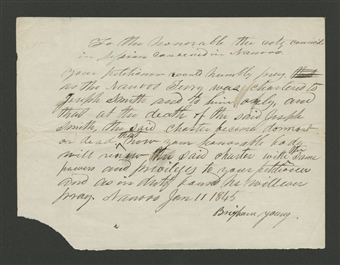 To the honorable the city council
in session convened in Nauvoo
your petitioner would humbly pray
as the Nauvoo Ferry was chartered to
Joseph Smith and to him only and
that at the death of the said Joseph
Smith, the said Charter became dormant
or dead that now your honorable body
will renew the said charter with the same
powers and privileges to your petitioner
and as in duty bound he will ever
pray Nauvoo Jan 11 1845
Brigham Young